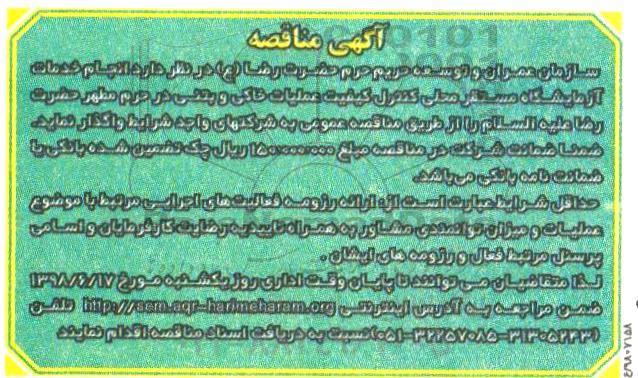 آگهی مناقصه
سازمان عمران و توسعه حریم حرم حضرت رضا (ع) در نظر دارد انجام خدمات
آزمایشگاه مستقر محلی کنترل کیفیت عملیات خاکی و بتنی در حرم مطهر حضرت
رضا علیه السلام را از طریق مناقصه عمومی به شرکتهای واجد شرایط واگذار نماید.
ضمنا ضمانت شرکت در مناقصه مبلغ ۱۵۰۰۰۰۰۰۰۰ ریال چک تضمین شده بانکی یا
ضمانت نامه بانکی می‌باشد.
حداقل شرایط عبارت است از: ارائه رزومه فعالیت‌های اجرایی مرتبط با موضوع
عملیات و میزان توانمندی مشاور به همراه تاییدیه رضایت کارفرمایان و اسامی
پرسنل مرتبط فعال و رزومه های ایشان .
لذا متقاضیان می توانند تا پایان وقت اداری روز یکشنبه مورخ ۱۳۹۸/۶/۱۷
ضمن مراجعه به آدرس اینترنتی http://aem.aqr-harimeharam.org تلفن
(۰۵۱-۳۲۲۵۷۰۸۵-۳۱۳۰۵۲۴۳) نسبت به دریافت اسناد مناقصه اقدام نمایند